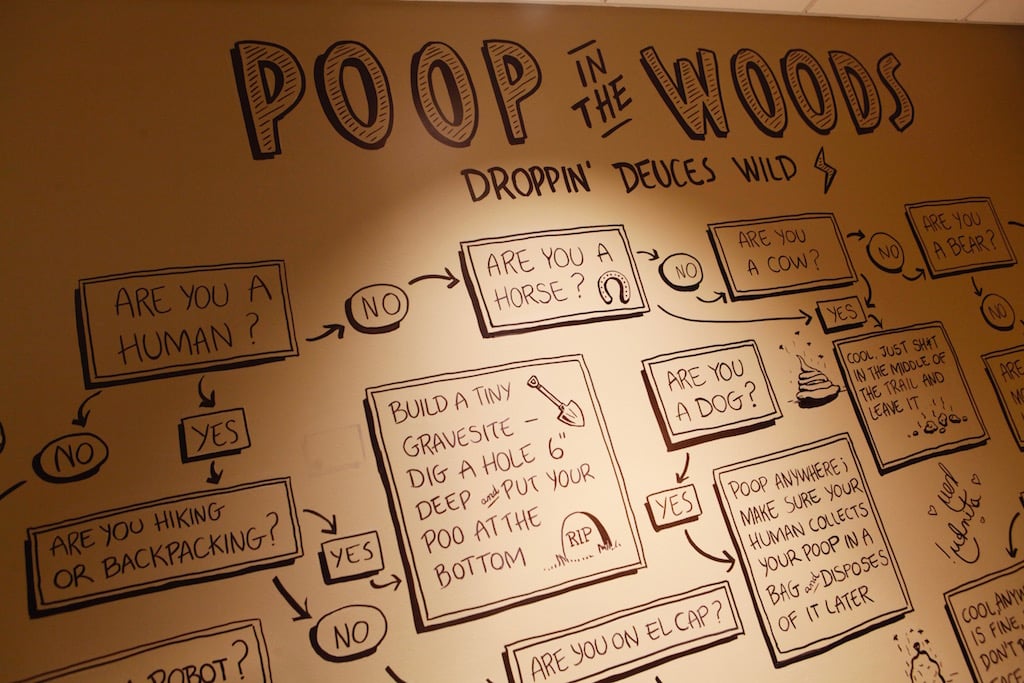 POOP IN THE WOODS
DROPPIN' DEUCES WILD
ARE YOU A
HUMAN?
NO
ARE YOU A
HORSE?
NO
ARE YOU
A COW?
NO
ARE YOU
A BEAR?
NO
YES
COOL, JUST SH#T
IN THE MIDDLE OF
THE TRAIL AND
LEAVE IT
NO
YES
ARE YOU HIKING
OR BACKPACKING?
YES
NO
BUILD A TINY
GRAVESITE –
DIG A HOLE 6"
DEEP and PUT YOUR
POO AT THE
BOTTOM
RIP
ARE YOU
A DOG?
YES
POOP ANYWHERE;
MAKE SURE YOUR
HUMAN COLLECTS
YOUR POOP IN A
BAG and DISPOSES
OF IT LATER
ARE YOU ON EL CAP?
ROBOT?
ARE
COOL, ANYW
IS FINE
DON'T